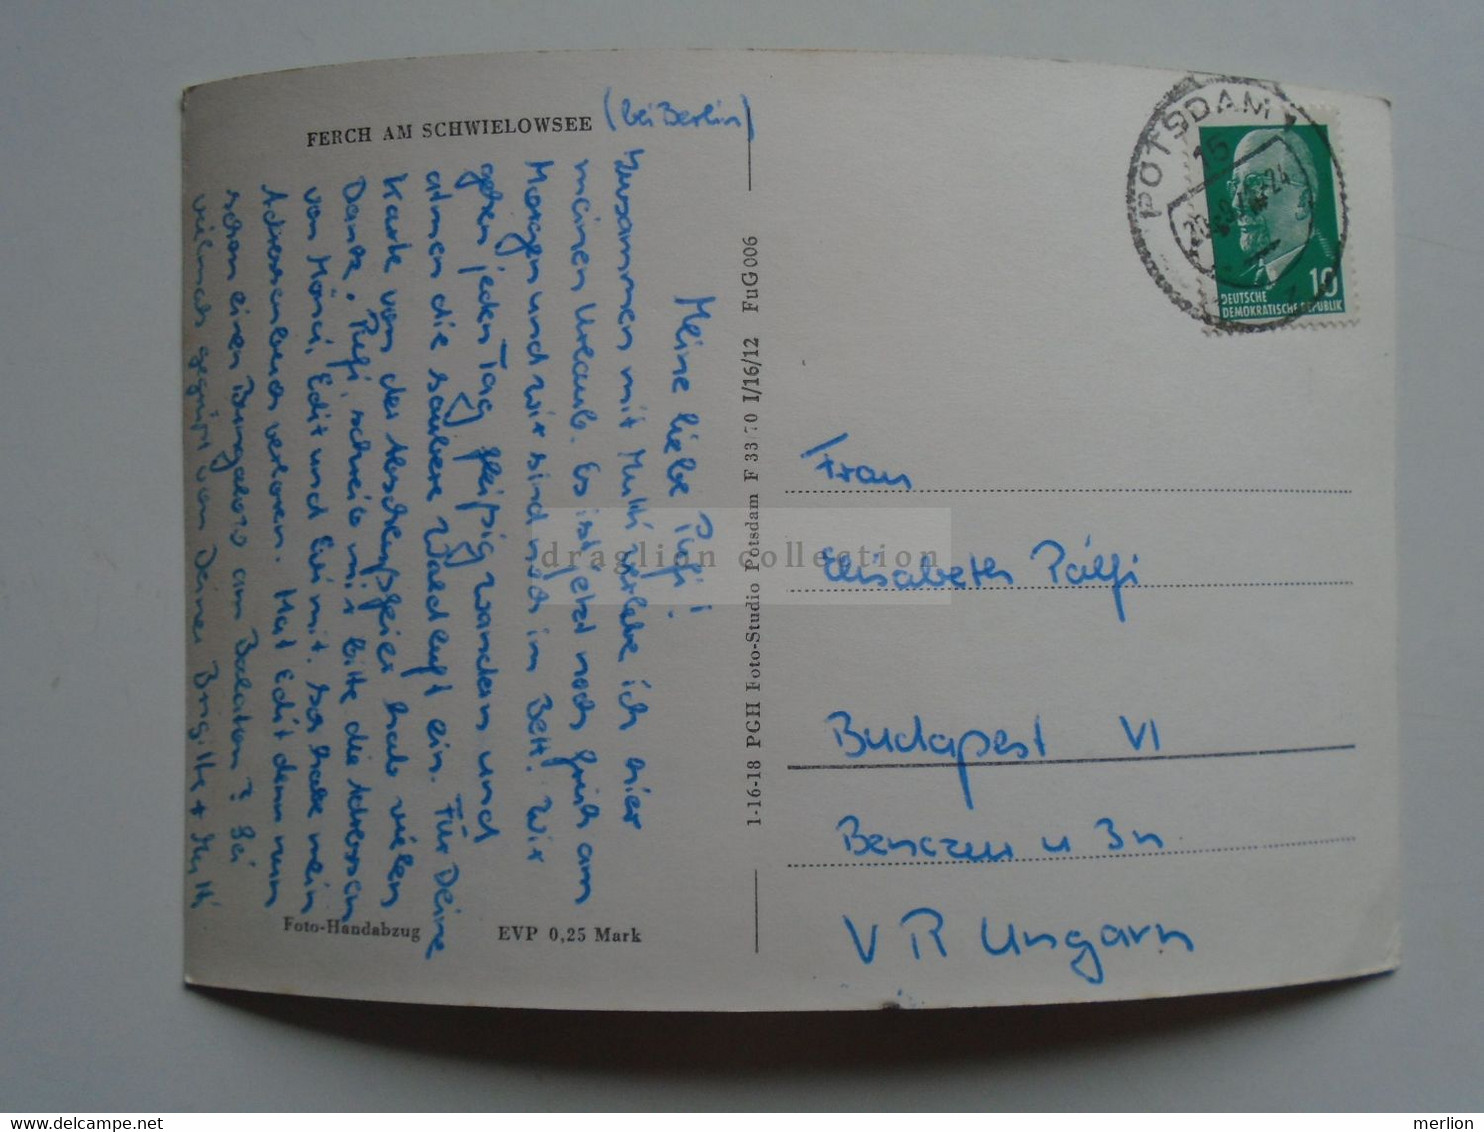 FERCH AM SCHWIELOWSEE (bei Berlin)
Meine liebe Pufi!
Zusammen mit Mutti verlebe ich hier
meinen Urlaub. Es ist jetzt noch früh am
Morgen und wir sind noch im Bett. Wir
gehen jeden Tag fleißig wandern und
atmen die saubere Waldluft ein. Für Deine
Karte von der feier hab vielen
Dank. Pufi, schreib mir bitte die Adressen
von Mönci, Edit und Evi mit. Ich habe mein
Adressenbuch verloren. Hat Edit denn nun
schon einen Bungalow am Balaton? Sei
vielmals gegrüßt von Deiner Brigitte + Mutti
Foto-Handabzug
EVP 0,25 Mark
1-16-18 PGH Foto-Studio Potsdam F 33/70 I/16/12 FuG 006
POTSDAM
15
10
DEUTSCHE
DEMOKRATISCHE REPUBLIK
Frau
Elisabeth Pálfi
Budapest VI
Benczur u 3n
VR Ungarn
draglion collection
merlion